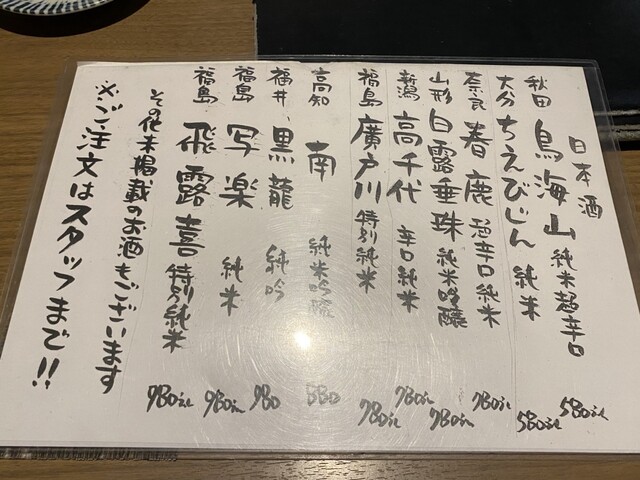 日本酒
秋田 鳥海山 純米超辛口 580
大分 ちえびじん 純米 580
奈良 春鹿 超辛口純米 780
山形 白露垂珠 純米吟醸 780
新潟 高千代 辛口純米 780
福島 廣戸川 特別純米 780
高知 南 純米吟醸 880
福井 黒龍 純吟 980
福島 写楽 純米 980
福島 飛露喜 特別純米 980
その他未掲載のお酒もございます
※ご注文はスタッフまで!!